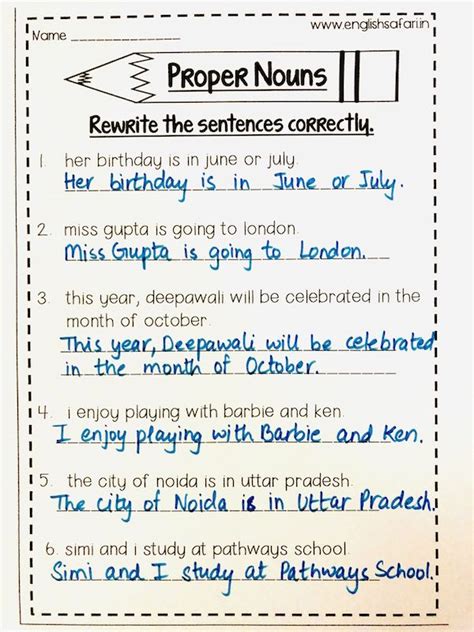 www.englishsafari.in
Name
Proper Nouns
Rewrite the sentences correctly.
1. her birthday is in june or july.
Her birthday is in June or July.
2. miss gupta is going to london.
Miss Gupta is going to London.
3. this year, deepawali will be celebrated in the
month of october.
This year, Deepawali will be celebrated
in the month of October.
4. i enjoy playing with barbie and ken.
I enjoy playing with Barbie and Ken.
5. the city of noida is in uttar pradesh.
The city of Noida is in Uttar Pradesh.
6. simi and i study at pathways school.
Simi and I study at Pathways School.